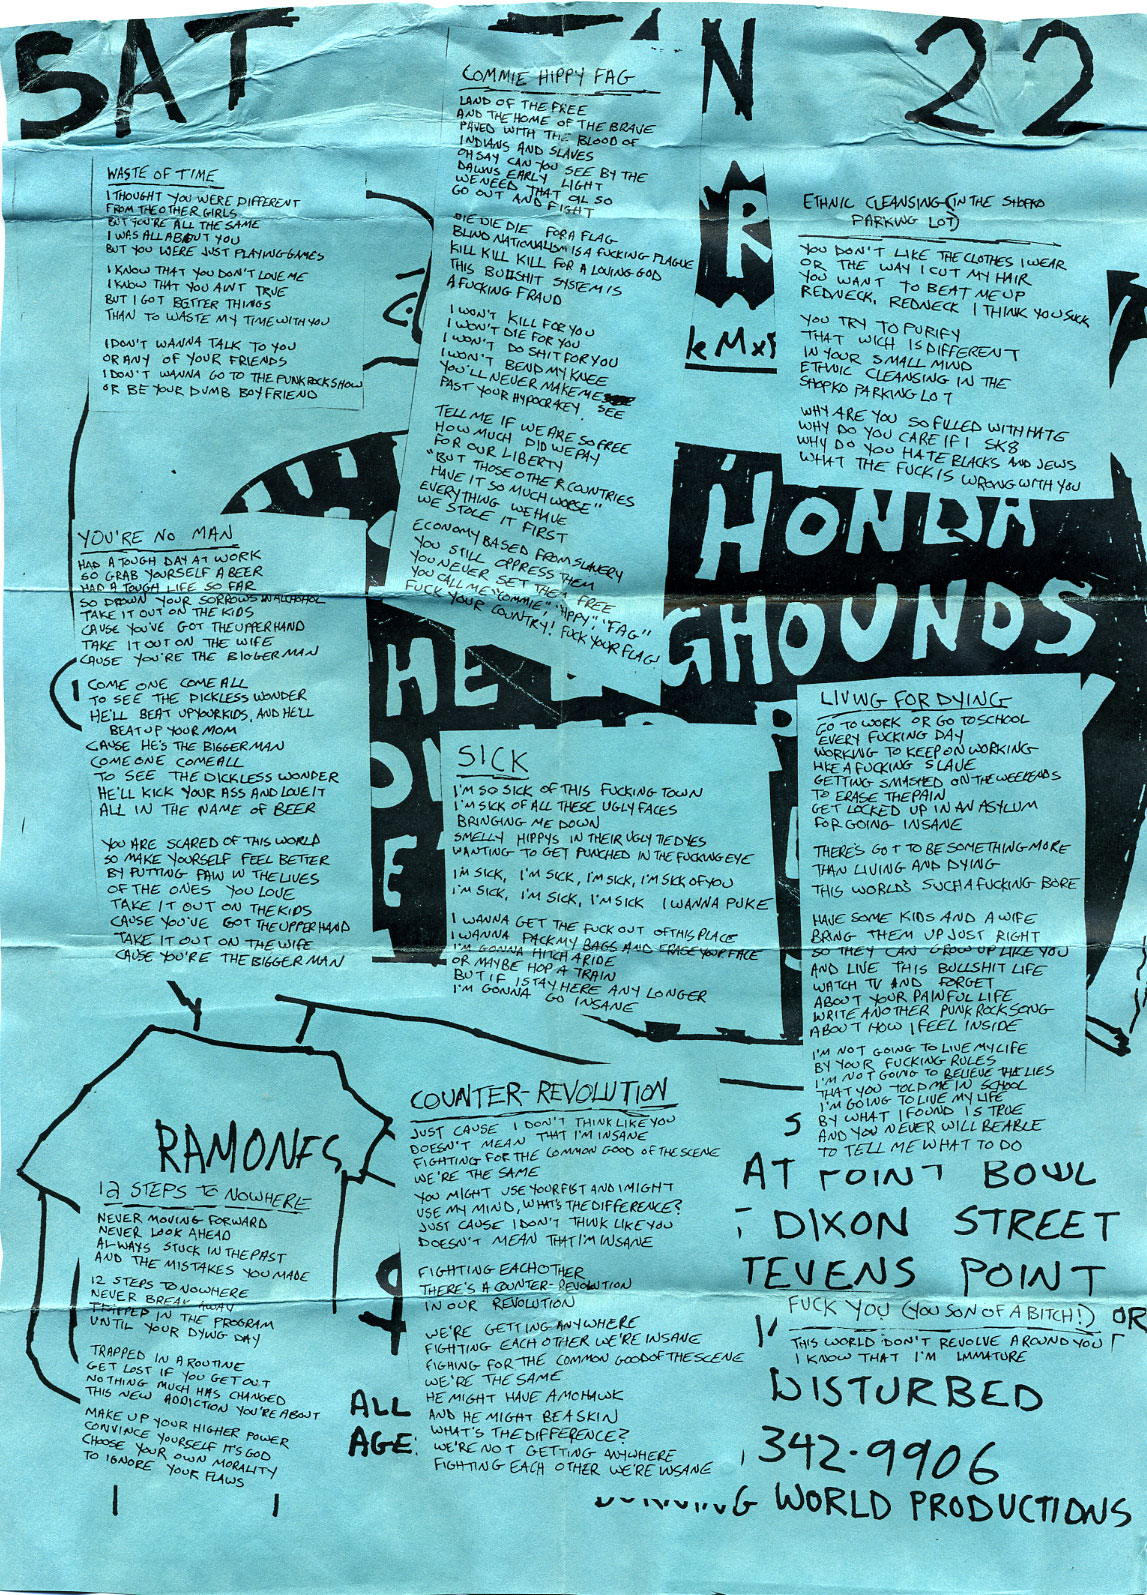 SAT
N 22
COMMIE HIPPY FAG
LAND OF THE FREE
AND THE HOME OF THE BRAVE
PAVED WITH THE BLOOD OF
INDIANS AND SLAVES
OH SAY CAN YOU SEE BY THE
DAWNS EARLY LIGHT
WE NEED THAT OIL SO
GO OUT AND FIGHT
DIE DIE DIE FOR A FLAG
BLIND NATIONALISM IS A FUCKING PLAGUE
KILL KILL KILL FOR A LOVING GOD
THIS BULLSHIT SYSTEM IS
A FUCKING FRAUD
I WON'T KILL FOR YOU
I WON'T DIE FOR YOU
I WON'T DO SHIT FOR YOU
I WON'T BEND MY KNEE
YOU'LL NEVER MAKE ME
PAST YOUR HYPOCRAKEY. SEE
TELL ME IF WE ARE SO FREE
HOW MUCH DID WE PAY
FOR OUR LIBERTY
"BUT THOSE OTHER COUNTRIES
HAVE IT SO MUCH WORSE"
EVERYTHING WE HAVE
WE STOLE IT FIRST
ECONOMY BASED FROM SLAVERY
YOU STILL OPPRESS THEM
YOU NEVER SET THEM FREE
YOU CALL ME "COMMIE", "HIPPY", "FAG"
FUCK YOUR COUNTRY! FUCK YOUR FLAG!
WASTE OF TIME
I THOUGHT YOU WERE DIFFERENT
FROM THE OTHER GIRLS
BUT YOU'RE ALL THE SAME
I WAS ALL ABOUT YOU
BUT YOU WERE JUST PLAYING GAMES
I KNOW THAT YOU DON'T LOVE ME
I KNOW THAT YOU AINT TRUE
BUT I GOT BETTER THINGS
THAN TO WASTE MY TIME WITH YOU
I DON'T WANNA TALK TO YOU
OR ANY OF YOUR FRIENDS
I DON'T WANNA GO TO THE PUNK ROCK SHOW
OR BE YOUR DUMB BOYFRIEND
R
ETHNIC CLEANSING (IN THE SHOPKO
PARKING LOT)
YOU DON'T LIKE THE CLOTHES I WEAR
OR THE WAY I CUT MY HAIR
YOU WANT TO BEAT ME UP
REDNECK, REDNECK I THINK YOU SUCK
YOU TRY TO PURIFY
THAT WICH IS DIFFERENT
IN YOUR SMALL MIND
ETHNIC CLEANSING IN THE
SHOPKO PARKING LOT
WHY ARE YOU SO FILLED WITH HATE
WHY DO YOU CARE IF I SK8
WHY DO YOU HATE BLACKS AND JEWS
WHAT THE FUCK IS WRONG WITH YOU
HONDA
GHOUNDS
HE
YOU'RE NO MAN
HAD A TOUGH DAY AT WORK
SO GRAB YOURSELF A BEER
HAD A TOUGH LIFE SO FAR
SO DROWN YOUR SORROWS IN ALCOHOL
TAKE IT OUT ON THE KIDS
CAUSE YOU'VE GOT THE UPPER HAND
TAKE IT OUT ON THE WIFE
CAUSE YOU'RE THE BIGGER MAN
COME ONE COME ALL
TO SEE THE DICKLESS WONDER
HE'LL BEAT UP YOUR KIDS, AND HE'LL
BEAT UP YOUR MOM
CAUSE HE'S THE BIGGER MAN
COME ONE COME ALL
TO SEE THE DICKLESS WONDER
HE'LL KICK YOUR ASS AND LOVE IT
ALL IN THE NAME OF BEER
YOU ARE SCARED OF THIS WORLD
SO MAKE YOURSELF FEEL BETTER
BY PUTTING PAIN IN THE LIVES
OF THE ONES YOU LOVE
TAKE IT OUT ON THE KIDS
CAUSE YOU'VE GOT THE UPPER HAND
TAKE IT OUT ON THE WIFE
CAUSE YOU'RE THE BIGGER MAN
SICK
I'M SO SICK OF THIS FUCKING TOWN
I'M SICK OF ALL THESE UGLY FACES
BRINGING ME DOWN
SMELLY HIPPYS IN THEIR UGLY TIE DYES
WANTING TO GET PUNCHED IN THE FUCKING EYE
I'M SICK, I'M SICK, I'M SICK, I'M SICK OF YOU
I'M SICK, I'M SICK, I'M SICK I WANNA PUKE
I WANNA GET THE FUCK OUT OF THIS PLACE
I WANNA PACK MY BAGS AND ERASE YOUR FACE
I'M GONNA HITCH A RIDE
OR MAYBE HOP A TRAIN
BUT IF I STAY HERE ANY LONGER
I'M GONNA GO INSANE
LIVING FOR DYING
GO TO WORK OR GO TO SCHOOL
EVERY FUCKING DAY
WORKING TO KEEP ON WORKING
LIKE A FUCKING SLAVE
GETTING SMASHED ON THE WEEKENDS
TO ERASE THE PAIN
GET LOCKED UP IN AN ASYLUM
FOR GOING INSANE
THERE'S GOT TO BE SOMETHING MORE
THAN LIVING AND DYING
THIS WORLD'S SUCH A FUCKING BORE
HAVE SOME KIDS AND A WIFE
BRING THEM UP JUST RIGHT
SO THEY CAN GROW UP LIKE YOU
AND LIVE THIS BULLSHIT LIFE
WATCH TV AND FORGET
ABOUT YOUR PAINFUL LIFE
WRITE ANOTHER PUNK ROCK SONG
ABOUT HOW I FEEL INSIDE
I'M NOT GOING TO LIVE MY LIFE
BY YOUR FUCKING RULES
I'M NOT GOING TO BELIEVE THE LIES
THAT YOU TOLD ME IN SCHOOL
I'M GOING TO LIVE MY LIFE
BY WHAT I FOUND IS TRUE
AND YOU NEVER WILL BE ABLE
TO TELL ME WHAT TO DO
RAMONES
12 STEPS TO NOWHERE
NEVER MOVING FORWARD
NEVER LOOK AHEAD
ALWAYS STUCK IN THE PAST
AND THE MISTAKES YOU MADE
12 STEPS TO NOWHERE
NEVER BREAK AWAY
TRAPPED IN THE PROGRAM
UNTIL YOUR DYING DAY
TRAPPED IN A ROUTINE
GET LOST IF YOU GET OUT
NOTHING MUCH HAS CHANGED
THIS NEW ADDICTION YOU'RE ABOUT
MAKE UP YOUR HIGHER POWER
CONVINCE YOURSELF IT'S GOD
CHOOSE YOUR OWN MORALITY
TO IGNORE YOUR FLAWS
COUNTER-REVOLUTION
JUST CAUSE I DON'T THINK LIKE YOU
DOESN'T MEAN THAT I'M INSANE
FIGHTING FOR THE COMMON GOOD OF THE SCENE
WE'RE THE SAME
YOU MIGHT USE YOUR FIST AND I MIGHT
USE MY MIND, WHAT'S THE DIFFERENCE?
JUST CAUSE I DON'T THINK LIKE YOU
DOESN'T MEAN THAT I'M INSANE
FIGHTING EACHOTHER
THERE'S A COUNTER-REVOLUTION
IN OUR REVOLUTION
WE'RE GETTING ANYWHERE
FIGHTING EACH OTHER WE'RE INSANE
FIGHING FOR THE COMMON GOOD OF THE SCENE
WE'RE THE SAME
HE MIGHT HAVE A MOHAWK
AND HE MIGHT BE A SKIN
WHAT'S THE DIFFERENCE?
WE'RE NOT GETTING ANYWHERE
FIGHTING EACH OTHER WE'RE INSANE
ALL
AGE
AT POINT BOWL
DIXON STREET
TEVENS POINT
FUCK YOU (YOU SON OF A BITCH!)
OR
THIS WORLD DON'T REVOLVE AROUND YOU
I KNOW THAT I'M IMMATURE
DISTURBED
342-9906
WORLD PRODUCTIONS